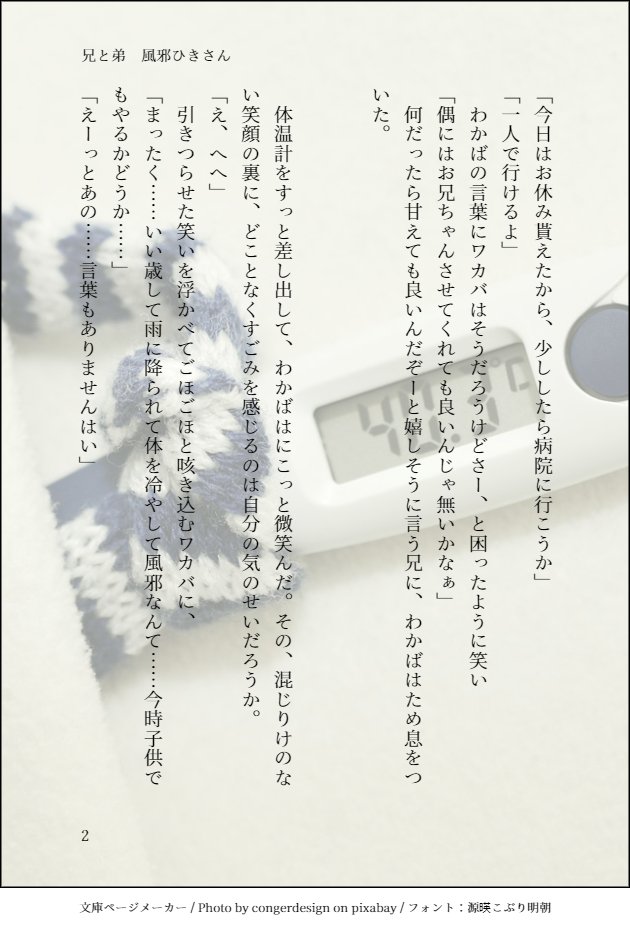 兄と弟　風邪ひきさん
「今日はお休み貰えたから、少ししたら病院に行こうか」
「一人で行けるよ」
　わかばの言葉にワカバはそうだろうけどさー、と困ったように笑い
「偶にはお兄ちゃんさせてくれても良いんじゃ無いかなぁ」
　何だったら甘えても良いんだぞーと嬉しそうに言う兄に、わかばはため息をつ
いた。
　体温計をすっと差し出して、わかばはにこっと微笑んだ。その、混じりけのな
い笑顔の裏に、どことなくすごみを感じるのは自分の気のせいだろうか。
「え、へへ」
　引きつらせた笑いを浮かべてごほごほと咳き込むワカバに、
「まったく……いい歳して雨に降られて体を冷やして風邪なんて……今時子供で
もやるかどうか……」
「えーっとあの……言葉もありませんはい」
2
文庫ページメーカー / Photo by congerdesign on pixabay / フォント：源暎こぶり明朝